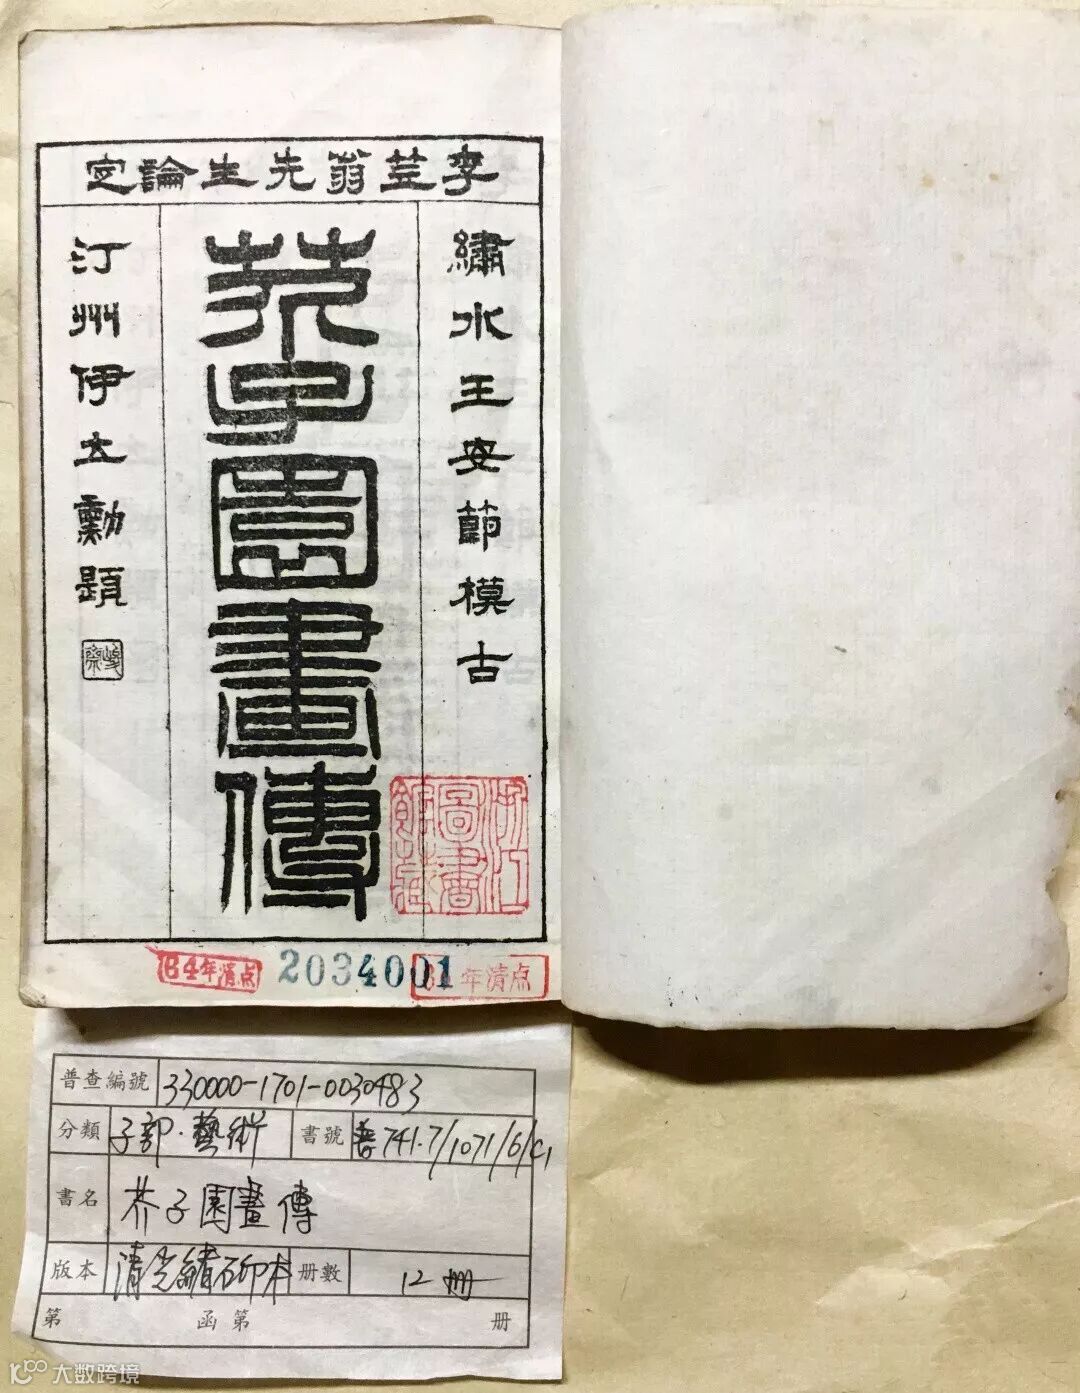 李荳翁先生論定
繡水王安節模古
芥子園畫傳
汀州伊立勳題
浙江
圖書
館藏
64年清点
2034001
64年清点
普查編號 330000-1701-0030483
分類 子部·藝術 書號 普741.7/1071/6/C1
書名 芥子園畫傳
版本 清光緒石印本 册數 12册
第 函第 册
大数跨境